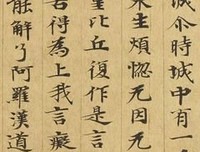 城尒時城中有一
生煩惱无因无
比丘復作是言
得為上我言癡
能解了阿羅漢道